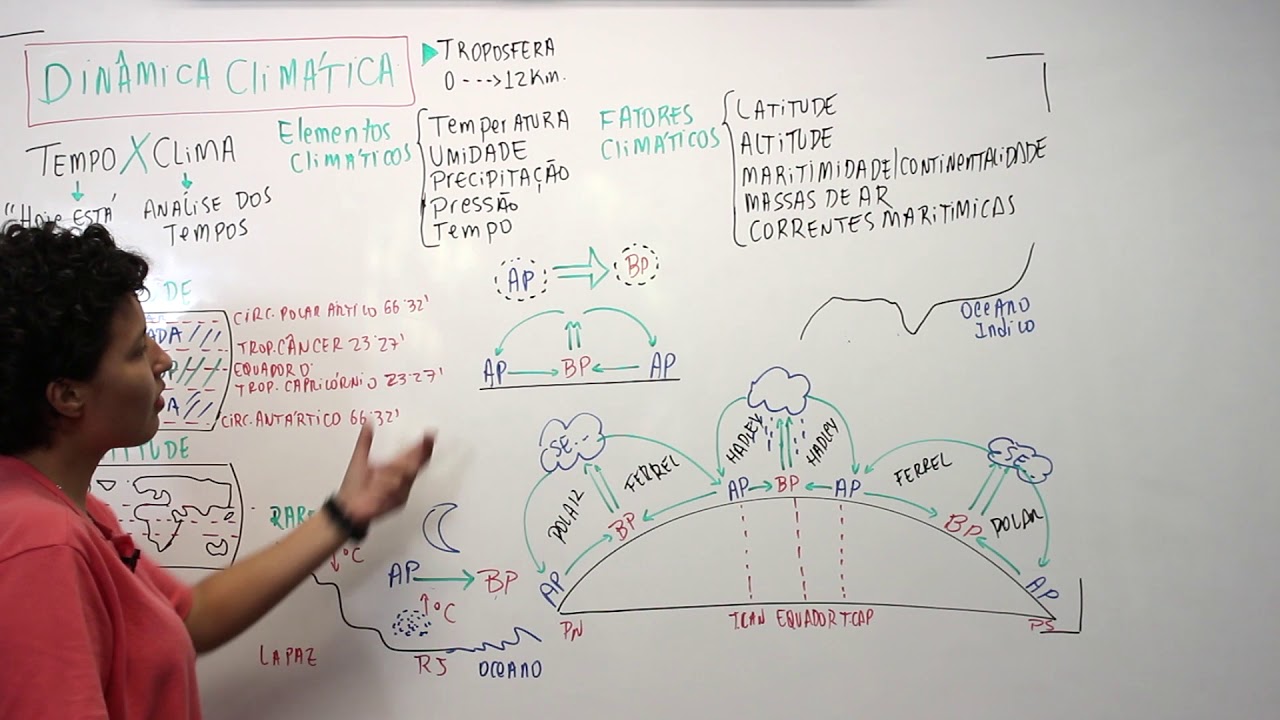 DINÂMICA CLIMÁTICA
TROPOSFERA
0 ---> 12 Km.
TEMPO X CLIMA
"HOJE ESTÁ
ANÁLISE DOS
TEMPOS
Elementos
CLIMÁTICOS
TemperATURA
UMIDADE
PRECIPITAÇÃO
Pressão
Tempo
FATORES
CLIMÁTICOS
LATITUDE
ALTITUDE
MARITIMIDADE/CONTINENTALIDADE
MASSAS DE AR
CORRENTES MARITIMICAS
AP BP
AP BP AP
OCEANO
Indico
DE
CIRC. POLAR ÁRTICO 66°32'
TROP. CÂNCER 23°27'
EQUADOR 0°
TROP. CAPRICÓRNIO 23°27'
CIRC. ANTÁRTICO 66°32'
TITUDE
RARE
°C
AP BP
°C
LA PAZ
RJ
OCEANO
SE
POLAR
FERREL
HADLEY
HADLEY
FERREL
SE
POLAR
AP BP AP BP AP BP AP
PN
TCAN EQUADOR TCAP
PS